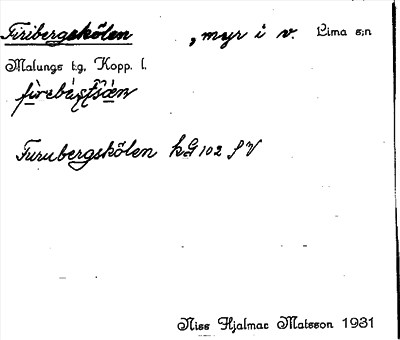 Firibergskölen , myr i v. Lima s:n
Malungs t.g. Kopp. l.
Furubergskölen kG 102 SV
Niss Hjalmar Matsson 1931